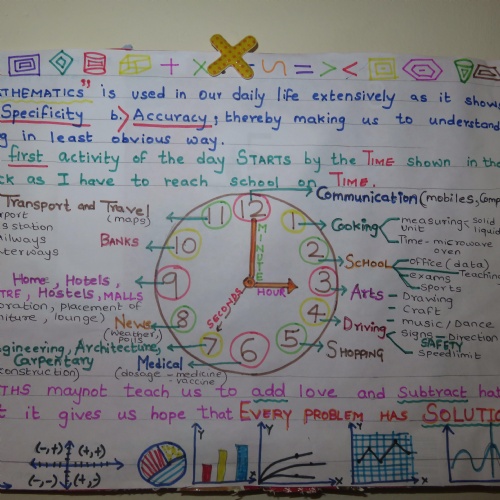 + × = > <
THEMATICS" is used in our daily life extensively as it show
Specificity b. > Accuracy ; thereby making us to understand
g in least obvious way.
first activity of the day STARTS by the TIME shown in the
ck as I have to reach school on TIME.
Transport and Travel
(maps)
rport
s station
ilways
terways
BANKS
Home, Hotels,
TRE, Hostels, MALLS
oration, placement of
niture, lounge)
News
(weather, polls
ngineering, Architecture,
Carpentary
construction)
Medical
(dosage - medicine
vaccine)
12
1
2
3
4
5
6
7
8
9
10
11
MINUTE
HOUR
SECONDS
Communication (mobiles, Comp
Cooking
measuring - solid
unit liquid
Time - microwave
oven
SCHOOL
office (data)
Teaching
exams
sports
Arts
Drawing
Craft
music / Dance
Driving
Signs - Direction
SAFETY
Speedlimit
SHOPPING
THS maynot teach us to add love and subtract hat
t it gives us hope that EVERY PROBLEM HAS SOLUTIO
(-,+) (+,+)
(-,-) (+,-)
Y
X
Y
X
Y
X
Y